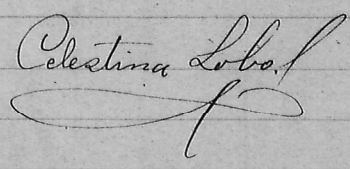 Celestina Lobo